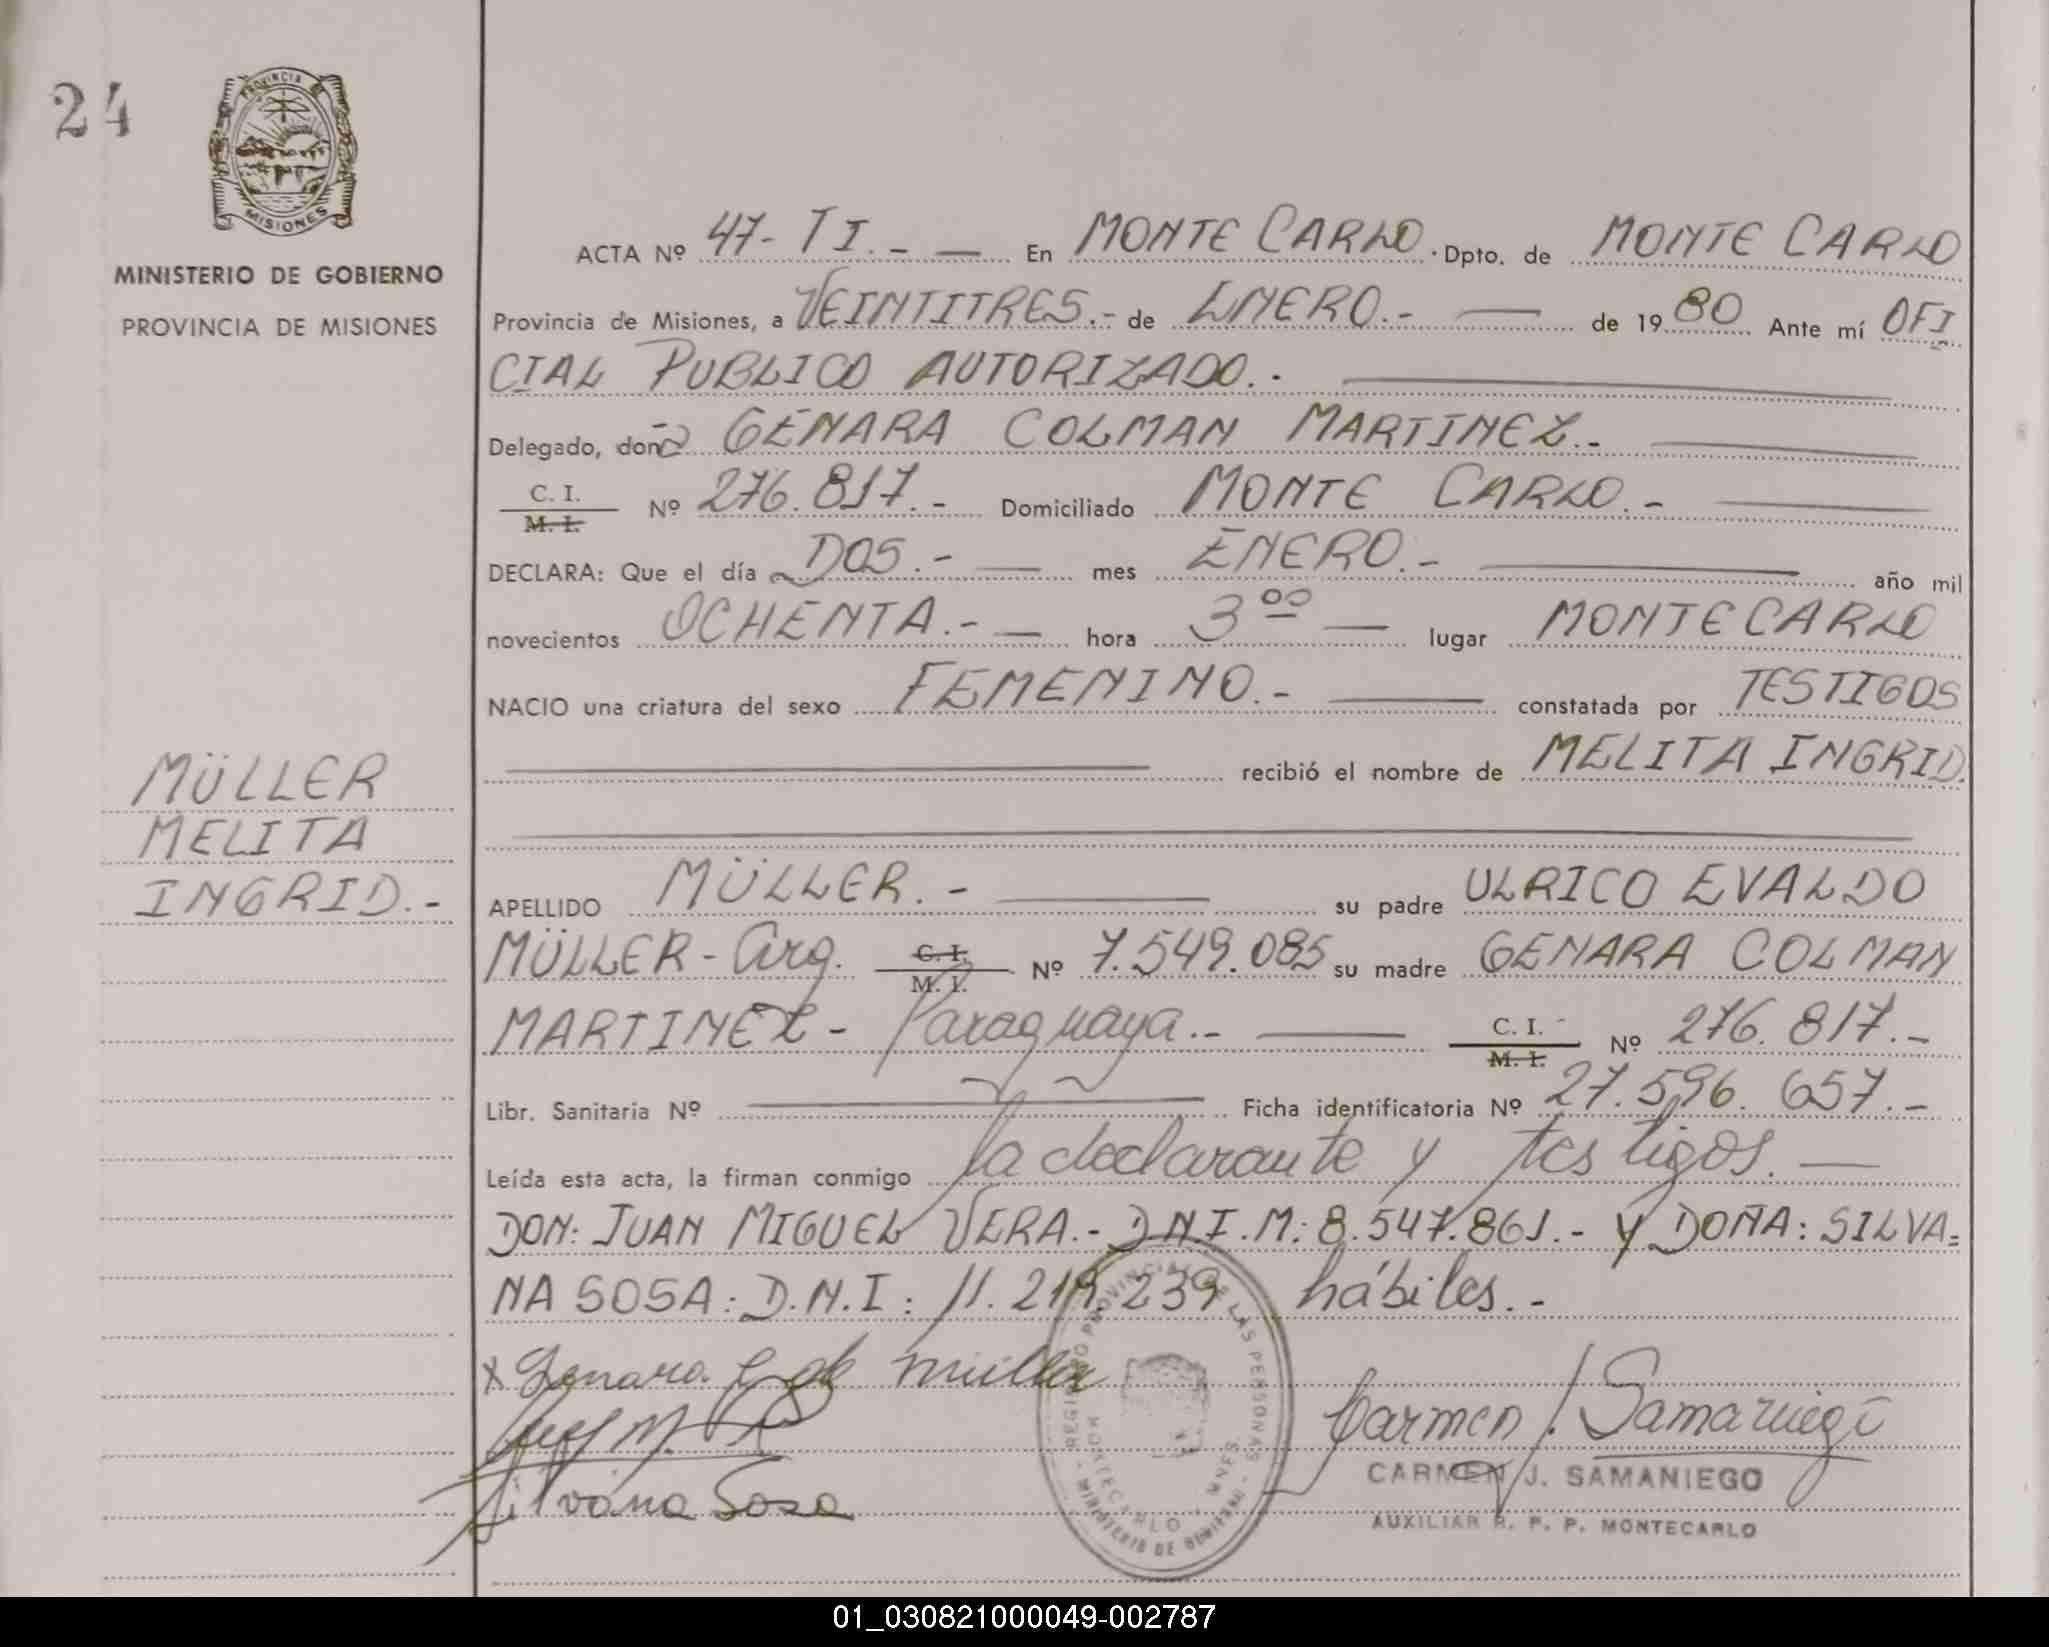 24
PROVINCIA
MISIONES
MINISTERIO DE GOBIERNO
PROVINCIA DE MISIONES
ACTA Nº 47- TI.- En MONTE CARLO. Dpto. de MONTE CARLO
Provincia de Misiones, a VEINTITRES.- de ENERO.- de 19 80 Ante mí OFI
CIAL PUBLICO AUTORIZADO.-
Delegado, doña GENARA COLMAN MARTINEZ.-
C. I.
M. I. Nº 276.817.- Domiciliado MONTE CARLO.-
DECLARA: Que el día DOS.- mes ENERO.- año mil
novecientos OCHENTA.- hora 3 00 lugar MONTECARLO
NACIO una criatura del sexo FEMENINO.- constatada por TESTIGOS
recibió el nombre de MELITA INGRID.
MÜLLER
MELITA
INGRID.-
APELLIDO MÜLLER.- su padre ULRICO EVALDO
MÜLLER- Arg. C. I.
M. I. Nº 7.549.085 su madre GENARA COLMAN
MARTINEZ- Paraguaya.- C. I.
M. I. Nº 276.817.-
Libr. Sanitaria Nº Ficha identificatoria Nº 27.596.657.-
Leída esta acta, la firman conmigo la declarante y testigos.
DON: JUAN MIGUEL VERA.- D.N.I.M: 8.547.861.- Y DOÑA: SILVA=
NA SOSA: D.N.I: 11.219.239 hábiles.-
x Genara müller
Silvana Sosa
Carmen J. Samaniego
CARMEN J. SAMANIEGO
AUXILIAR R. P. P. MONTECARLO
REGISTRO PROVINCIAL DE LAS PERSONAS
MINISTERIO DE GOBIERNO
MONTECARLO MNES.
01_030821000049-002787